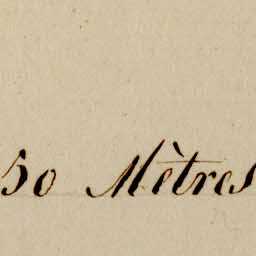 50 Mètres